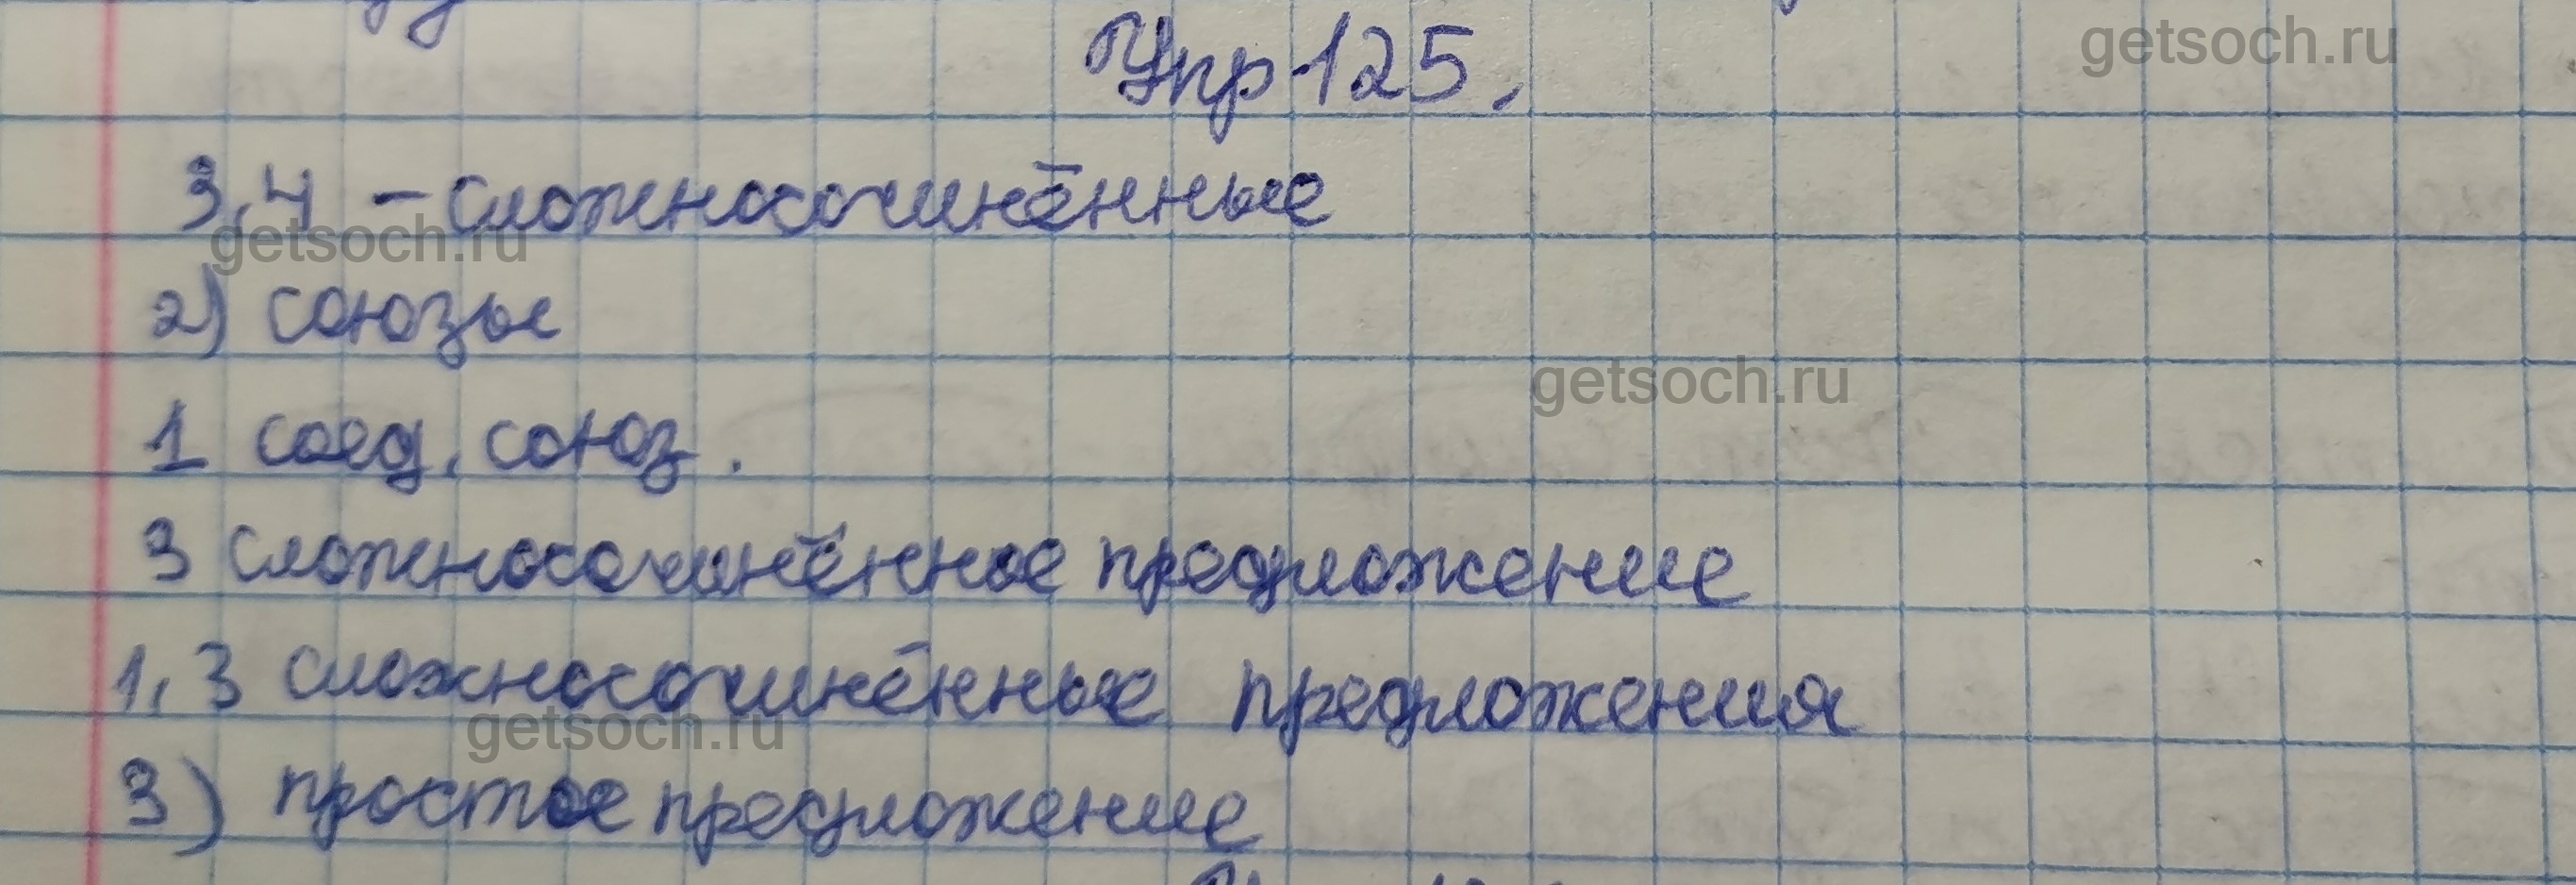 Упр 125.
getsoch.ru
3,4 – сложносочинённые
getsoch.ru
2) союзы
getsoch.ru
1 соед. союз.
3 сложносочинённое предложение
1,3 сложносочинённые предложения
getsoch.ru
3) простое предложение